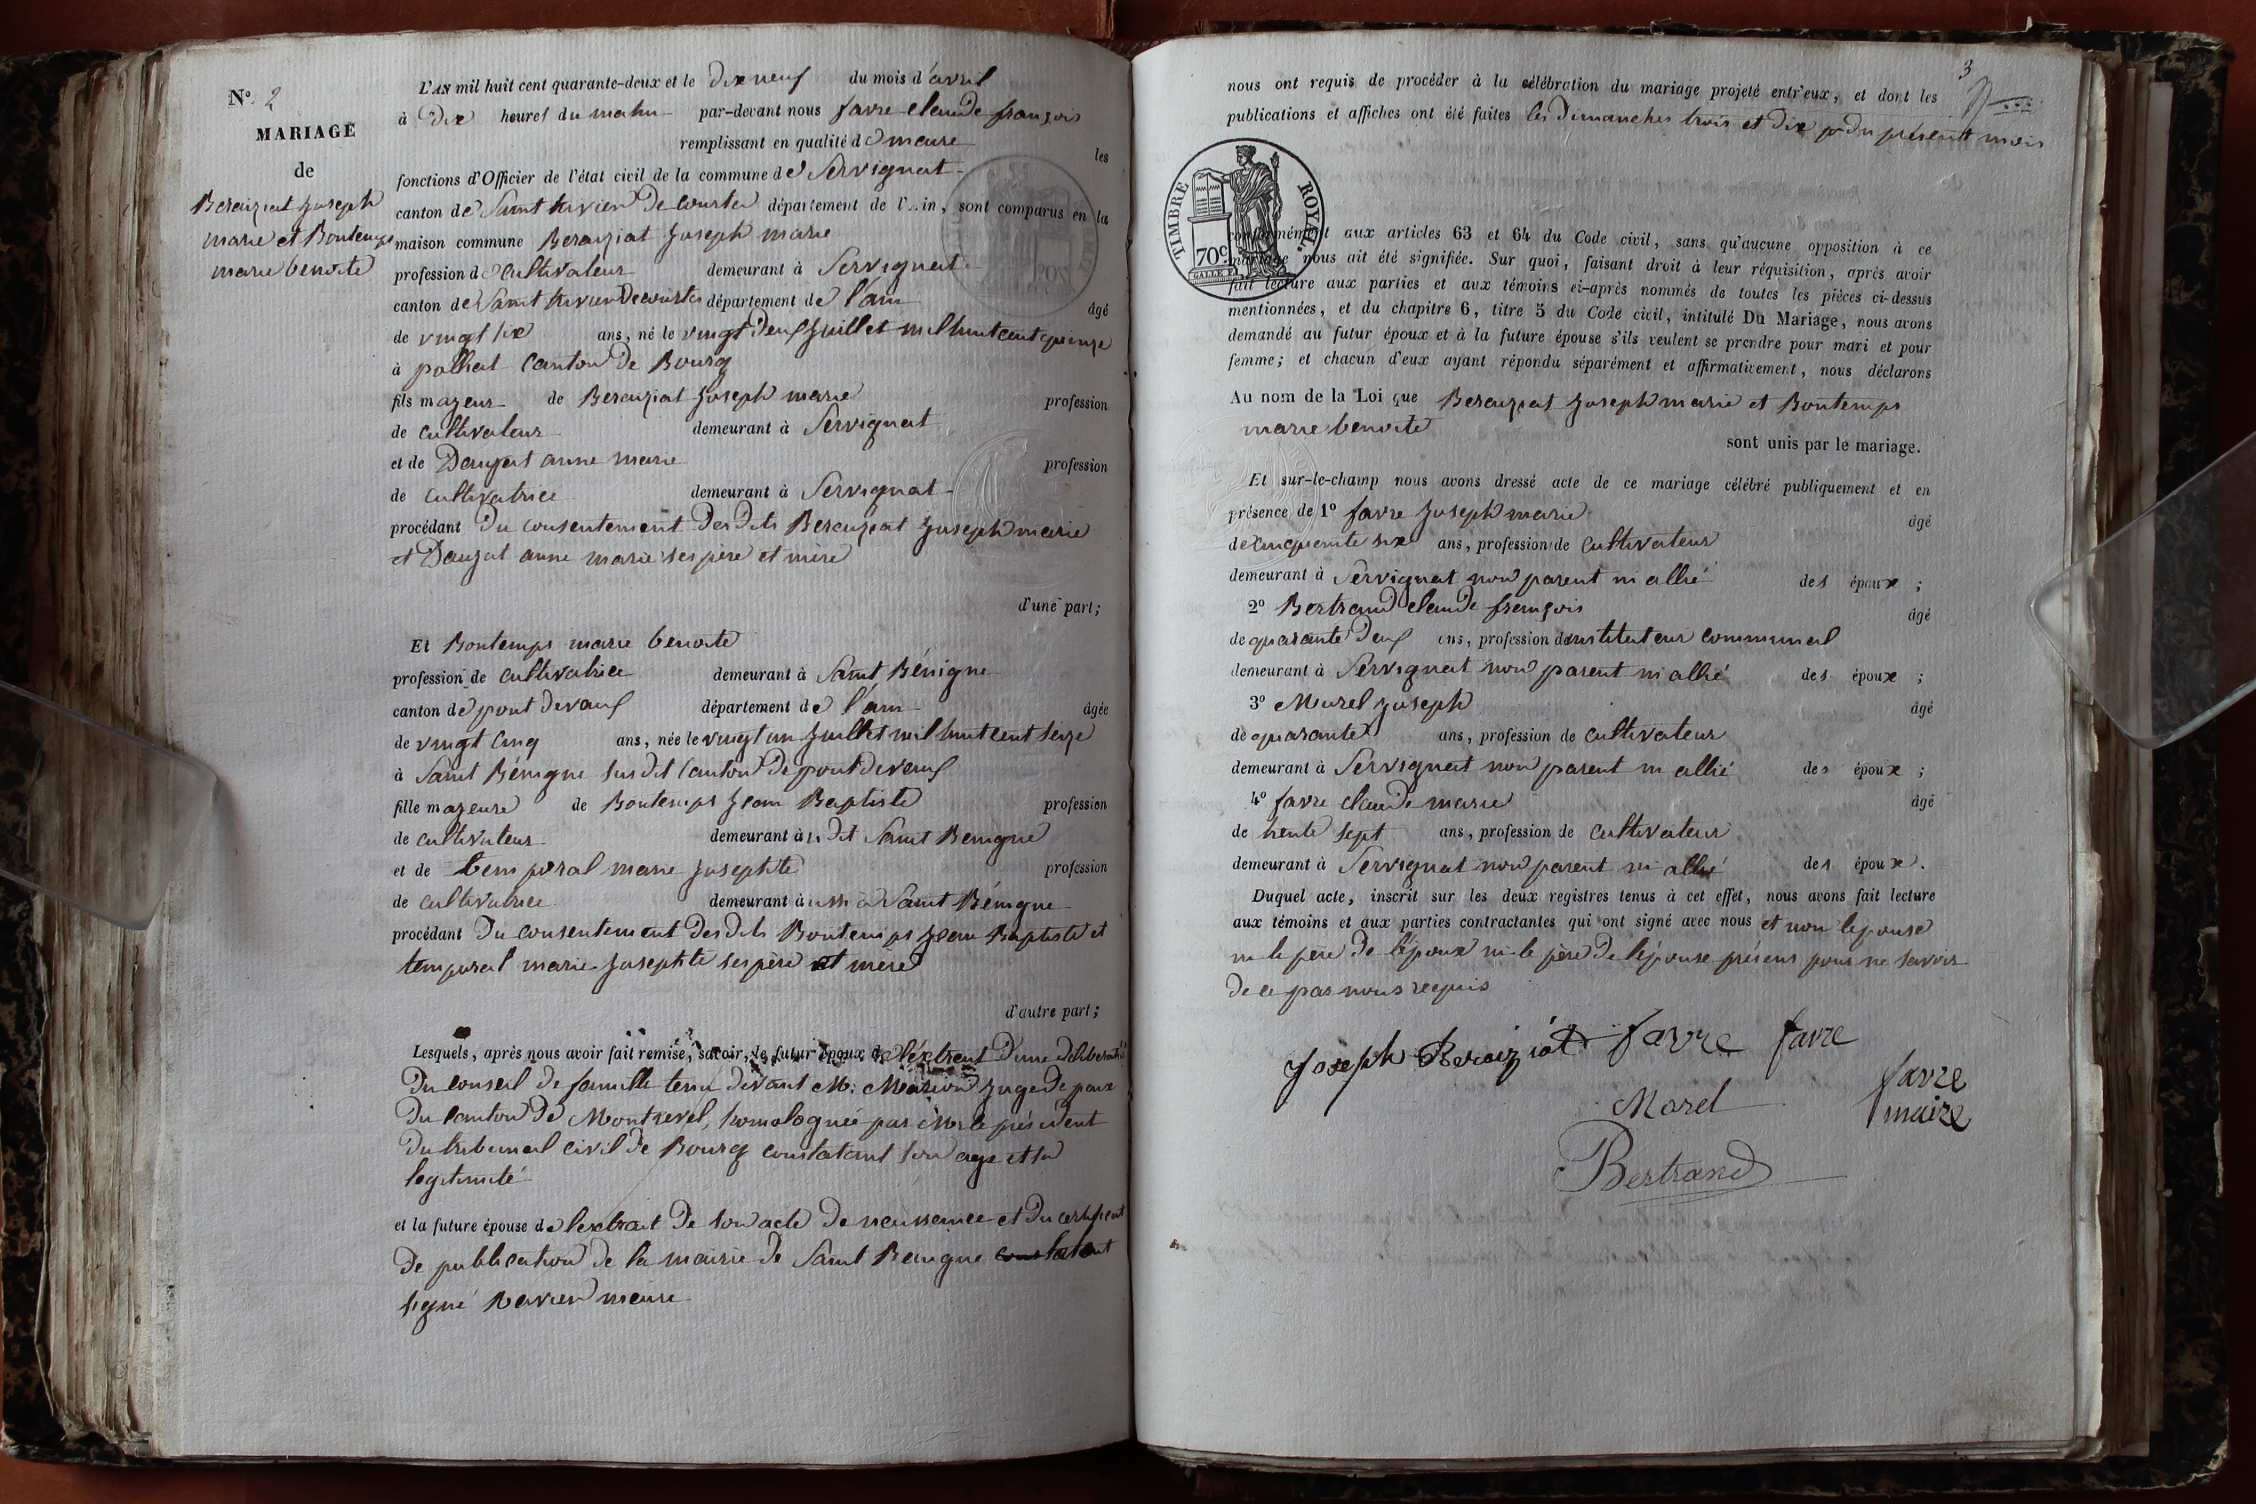 N.º 2
MARIAGE
de
Berauziat Joseph
marie et Bontemps
marie benoite
L'AN mil huit cent quarante-deux et le dix neuf du mois d'avril
à dix heures du matin par-devant nous favre claude françois
remplissant en qualité de maire les
fonctions d'Officier de l'état civil de la commune de Servignat
canton de Saint trivier de courtes département de l'Ain, sont comparus en la
maison commune Berauziat Joseph marie
profession de cultivateur demeurant à Servignat
canton de Saint trivier de courtes département de l'ain âgé
de vingt six ans, né le vingt deux Juillet mil huit cent quinze
à polliat canton de Bourg
fils majeur de Berauziat Joseph marie profession
de cultivateur demeurant à Servignat
et de Daujat anne marie profession
de cultivatrice demeurant à Servignat
procédant du consentement des dits Berauziat Joseph marie
et Daujat anne marie ses père et mère
d'une part;
Et Bontemps marie benoite
profession de cultivatrice demeurant à Saint Bénigne
canton de pont devaux département de l'ain âgée
de vingt cinq ans, née le vingt un Juillet mil huit cent seize
à Saint Bénigne sus dit canton de pont devaux
fille majeure de Bontemps Jean Baptiste profession
de cultivateur demeurant à dit Saint Benigne
et de temporal marie Josephte profession
de cultivatrice demeurant aussi à Saint Bénigne
procédant du consentement des dits Bontemps Jean Baptiste et
temporal marie Josephte ses père et mère
d'autre part;
Lesquels, après nous avoir fait remise, savoir, le futur époux de l'extrait d'une délibération
du conseil de famille tenu devant M. Marion Juge de paix
du canton de Montrevel, homologuée par Mr le président
du tribunal civil de Bourg constatant son age et sa
legitimité
et la future épouse de l'extrait de son acte de naissance et du certificat
de publication de la mairie de Saint Benigne constatant
signé Ravier maire
3
nous ont requis de procéder à la célébration du mariage projeté entr'eux, et dont les
publications et affiches ont été faites les dimanches trois et dix du présent mois
TIMBRE ROYAL.
70c
conformément aux articles 63 et 64 du Code civil, sans qu'aucune opposition à ce
mariage nous ait été signifiée. Sur quoi, faisant droit à leur réquisition, après avoir
fait lecture aux parties et aux témoins ci-après nommés de toutes les pièces ci-dessus
mentionnées, et du chapitre 6, titre 5 du Code civil, intitulé Du Mariage, nous avons
demandé au futur époux et à la future épouse s'ils veulent se prendre pour mari et pour
femme; et chacun d'eux ayant répondu séparément et affirmativement, nous déclarons
Au nom de la Loi que Berauziat Joseph marie et Bontemps
marie benoite
sont unis par le mariage.
Et sur-le-champ nous avons dressé acte de ce mariage célébré publiquement et en
présence de 1º favre Joseph marie âgé
de cinquante six ans, profession de cultivateur
demeurant à Servignat non parent ni allié des époux;
2º Bertrand claude françois âgé
de quarante deux ans, profession d'instituteur communal
demeurant à Servignat non parent ni allié des époux;
3º Morel Joseph âgé
de quarante ans, profession de cultivateur
demeurant à Servignat non parent ni allié des époux;
4º favre claude marie âgé
de trente sept ans, profession de cultivateur
demeurant à Servignat non parent ni allié des époux.
Duquel acte, inscrit sur les deux registres tenus à cet effet, nous avons fait lecture
aux témoins et aux parties contractantes qui ont signé avec nous et non l'épouse
ni le père de l'époux ni le père de l'épouse présens pour ne savoir
de ce par nous requis
Joseph Beroiziat favre favre
favre
maire
Morel
Bertrand